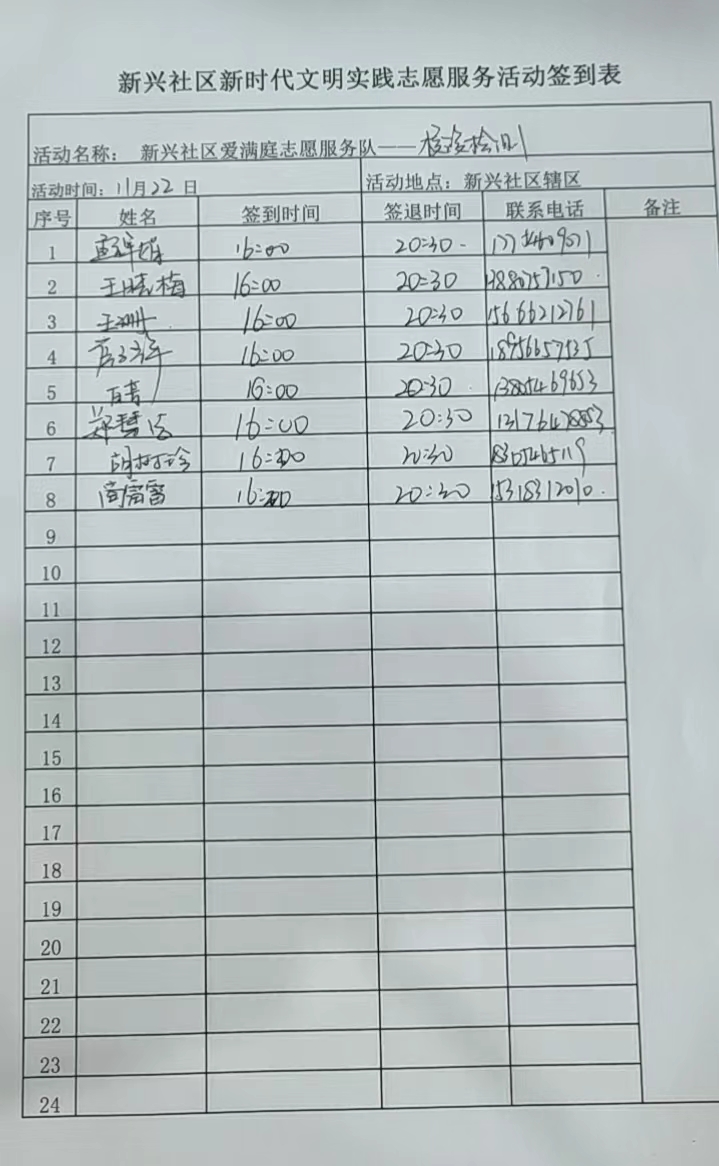 新兴社区新时代文明实践志愿服务活动签到表
活动名称： 新兴社区爱满庭志愿服务队——核酸检测
活动时间：11月22日 活动地点：新兴社区辖区
序号 姓名 签到时间 签退时间 联系电话 备注
1 16:00 20:30
2 王晓梅 16:00 20:30
3 王珊 16:00 20:30 15666212761
4 16:00 20:30
5 16:00 20:30 13805469653
6 郑慧 16:00 20:30
7 16:00 20:30
8 16:00 20:30 15318312010
9
10
11
12
13
14
15
16
17
18
19
20
21
22
23
24